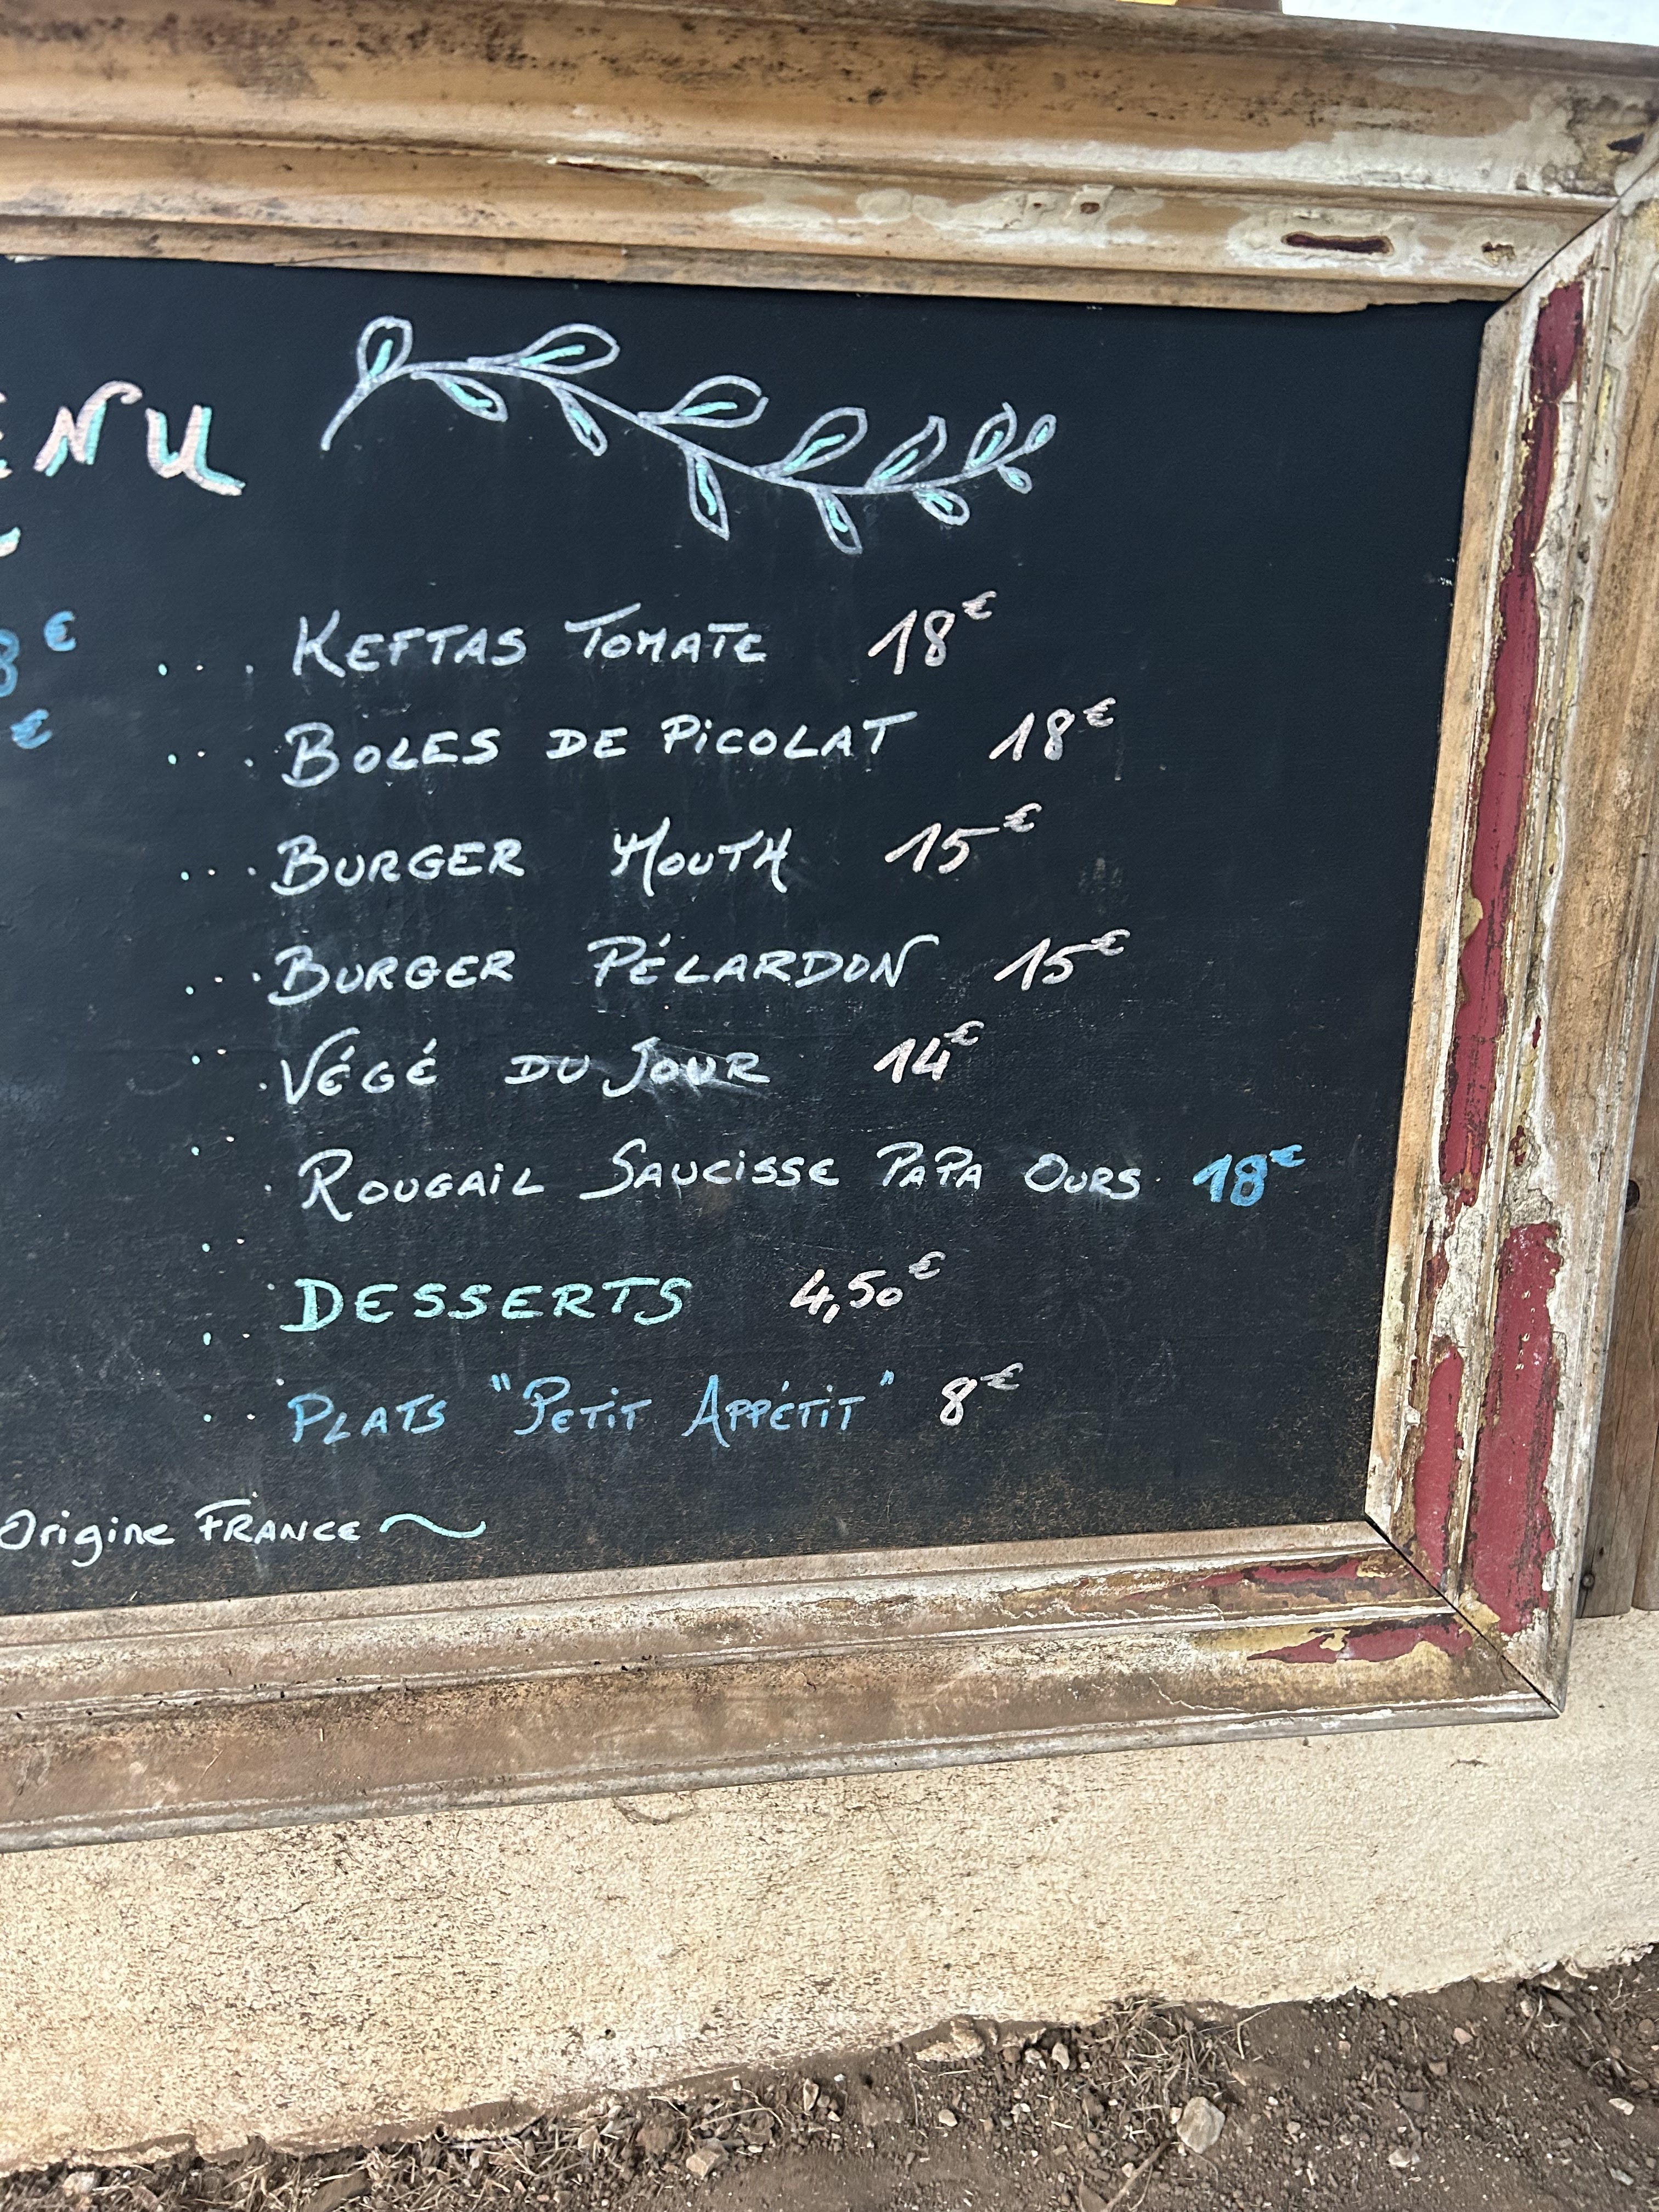 ENU
8€
€
KEFTAS TOMATE 18€
BOLES DE PICOLAT 18€
BURGER MOUTH 15€
BURGER PÉLARDON 15€
VÉGÉ DU JOUR 14€
ROUGAIL SAUCISSE PAPA OURS 18€
DESSERTS 4,50€
PLATS "PETIT APPÉTIT" 8€
Origine FRANCE